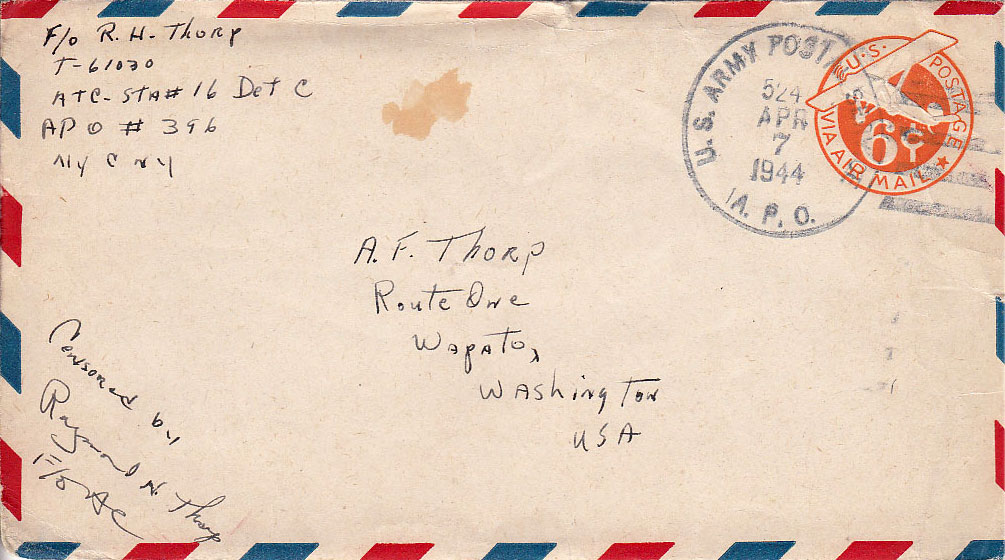 F/o R. H. Thorp
T-61030
ATC-STA# 16 Det C
APO # 396
NY C NY
U.S. ARMY POSTAL
524
APR
7
1944
A.P.O.
U.S. POSTAGE
6¢
VIA AIR MAIL
A. F. Thorp
Route One
Wapato,
Washington
USA
Censored by
Raymond H. Thorp
F/o AC